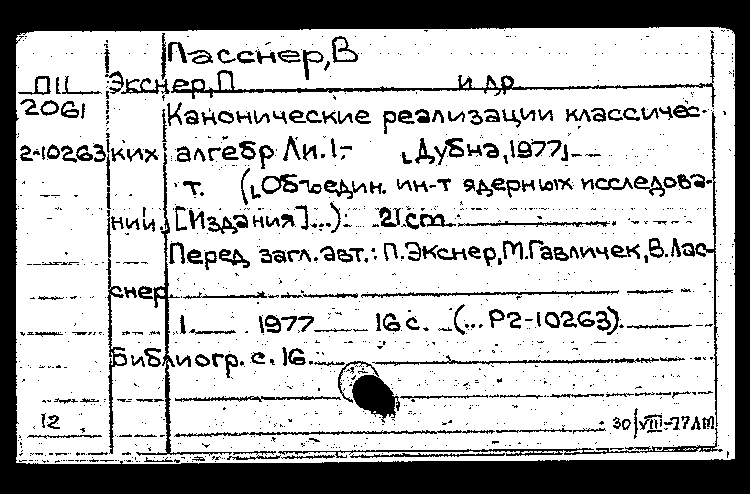 Ласснер, В
П11 Экснер, П и др
2061 Канонические реализации классичес-
2-10263 ких алгебр Ли. 1- [Дубна, 1977]
т. ([Объедин. ин-т ядерных исследова-
ний. [Издания]...). 21 cm.
Перед загл. авт.: П. Экснер, М. Гавличек, В. Лас-
снер
1. 1977 16 с. (...Р2-10263).
Библиогр. с. 16.
12 30/VIII-77 ЛМ